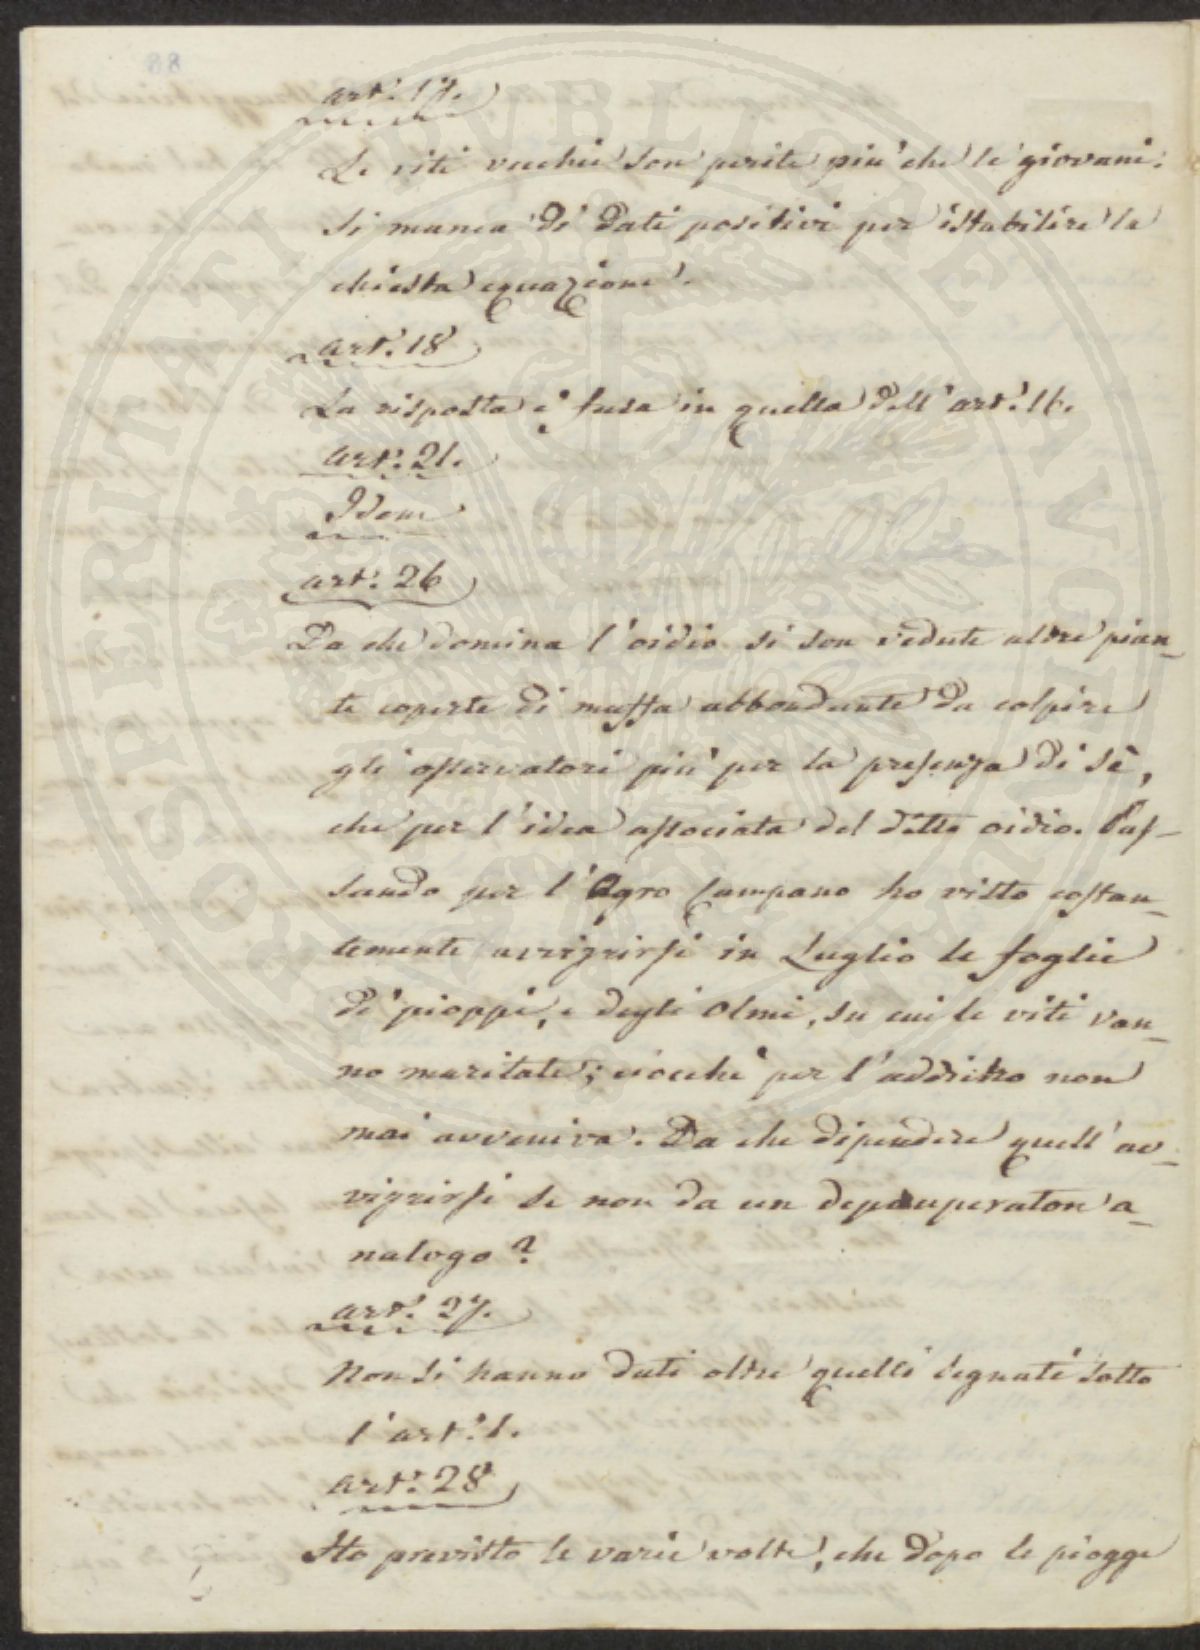 art.° 17.
Le viti vecchie son perite più che le giovani.
Si manca di dati positivi per istabilire la
chiesta equazione.
art.° 18
La risposta è fusa in quella dell'art.° 16.
art.° 21.
Idem
art.° 26
Da che domina l'oidio si son vedute altre pian-
te coperte di muffa abbondante da colpire
gli osservatori più per la presenza di sè,
che per l'idea associata del detto oidio. Pas-
sando per l'Agro Campano ho visto costan-
temente avvizzirsi in Luglio le foglie
di pioppi, e degli olmi, su cui le viti van-
no maritate; ciocchè per l'addietro non
mai avveniva. Da che dipendere quell'av-
vizzirsi se non da un depauperatore a-
nalogo?
art.° 27.
Non si hanno dati oltre quelli segnati sotto
l'art.° 1.
art.° 28
Ho previsto le varie volte, che dopo le piogge